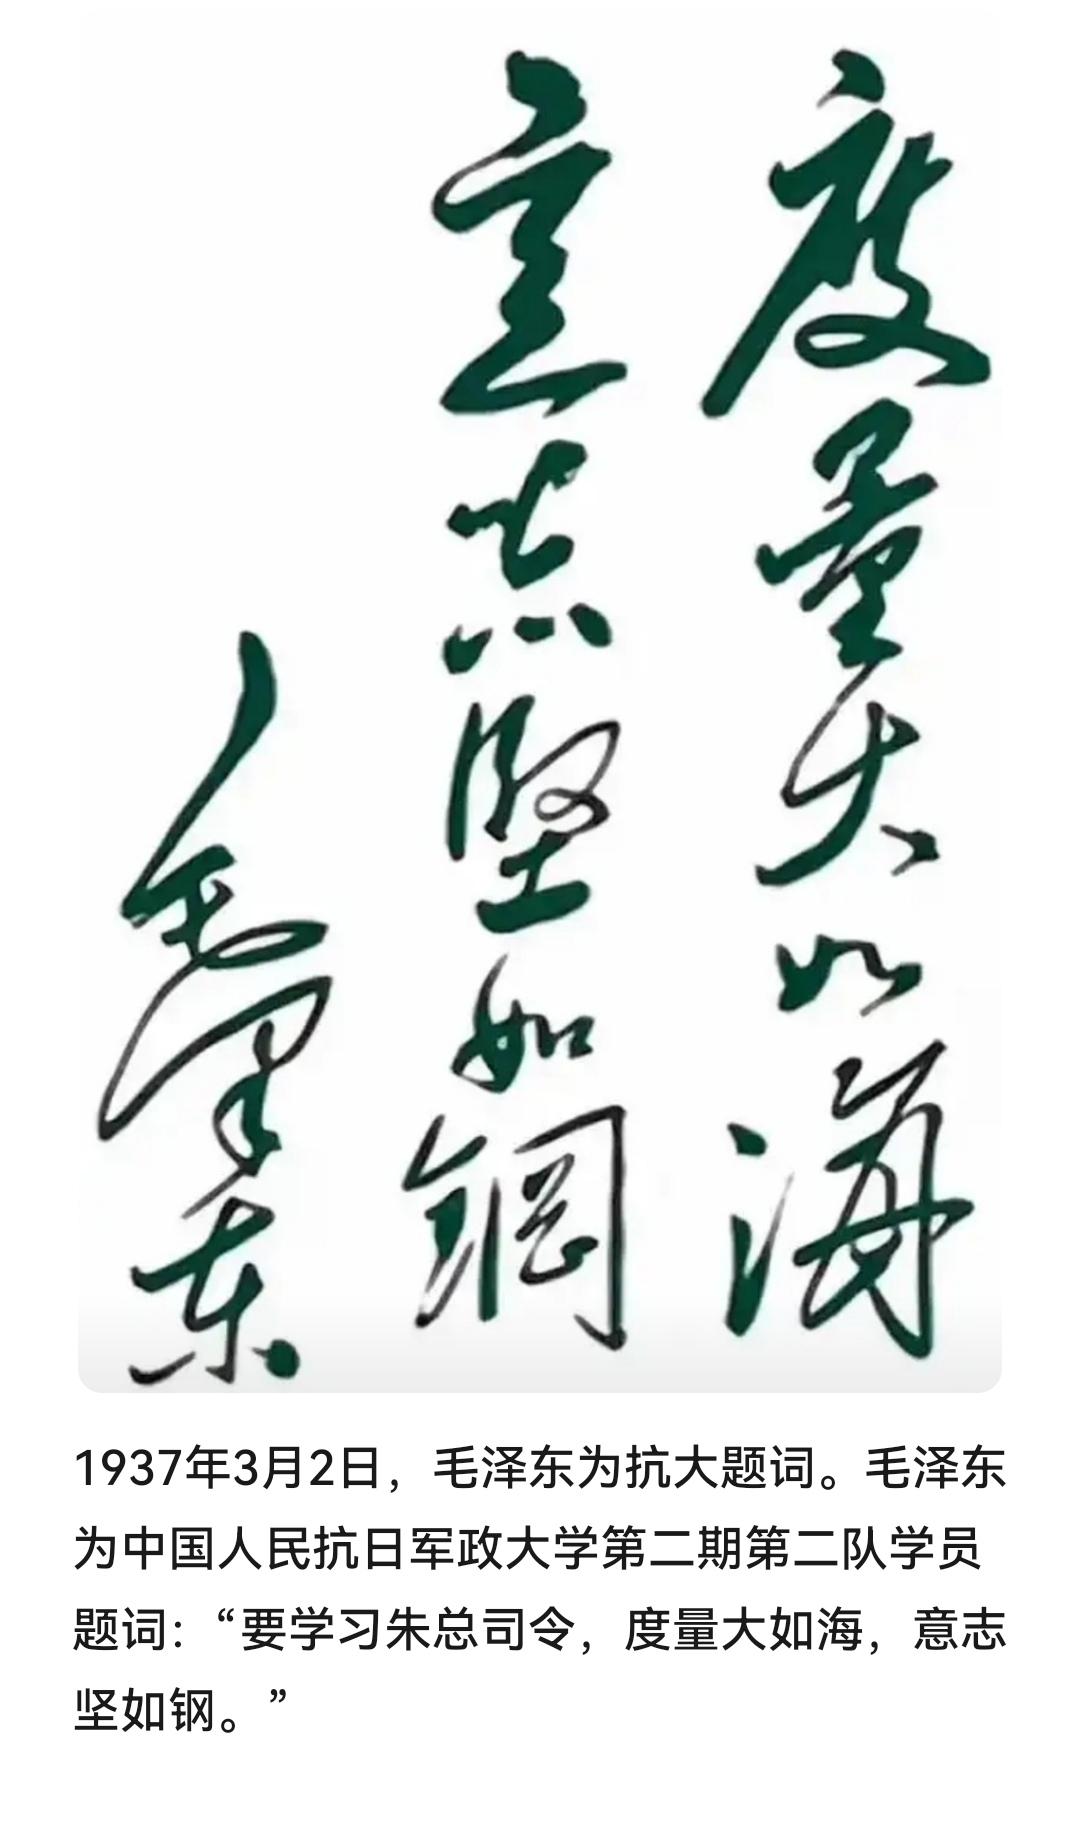 度量大如海
意志堅如鋼
毛泽东
1937年3月2日，毛泽东为抗大题词。毛泽东
为中国人民抗日军政大学第二期第二队学员
题词：“要学习朱总司令，度量大如海，意志
坚如钢。”